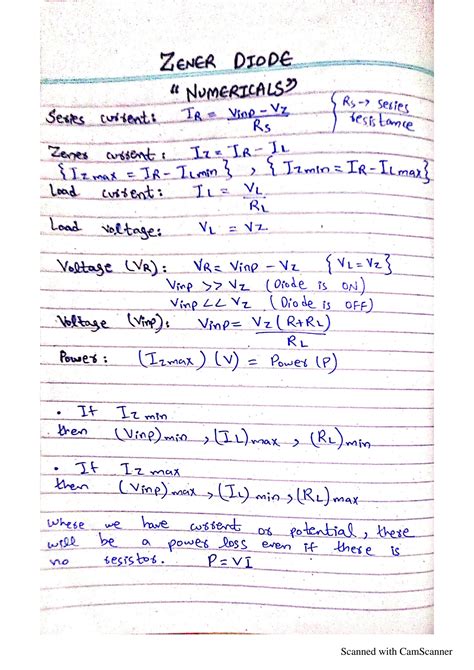 ZENER DIODE
"NUMERICALS"
Series current: I_R = (Vinp - Vz) / Rs { Rs → series resistance
Zener current: Iz = I_R - I_L
{Iz max = I_R - I_L min}, {Iz min = I_R - I_L max}
Load current: I_L = V_L / R_L
Load voltage: V_L = Vz
Voltage (V_R): V_R = Vinp - Vz {V_L = Vz}
Vinp >> Vz (Diode is ON)
Vinp << Vz (Diode is OFF)
Voltage (Vinp): Vinp = Vz (R+R_L) / R_L
Power: (Iz max) (V) = Power (P)
• If Iz min
then (Vinp) min, (I_L) max, (R_L) min
• If Iz max
then (Vinp) max, (I_L) min, (R_L) max
Where we have current or potential, there
will be a power loss even if there is
no resistor. P = VI
Scanned with CamScanner